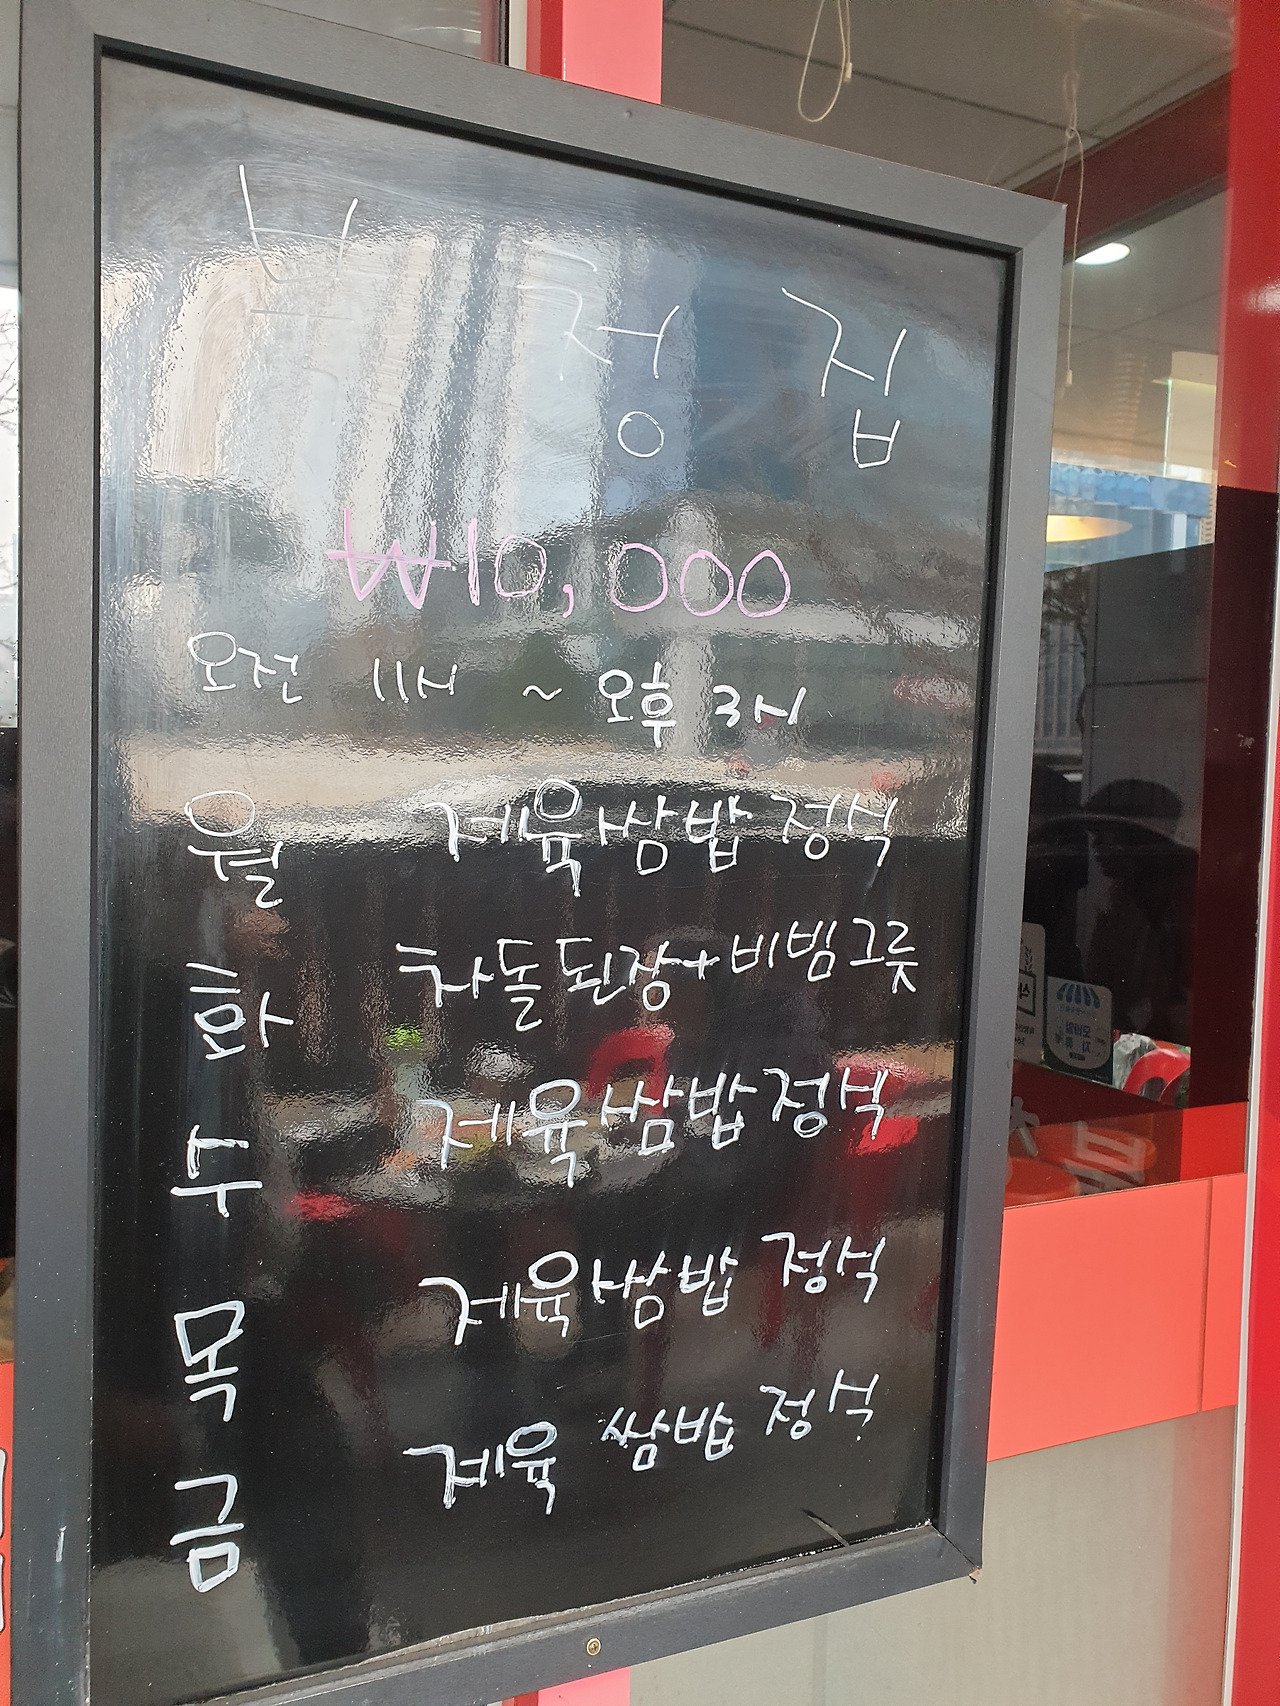 정 집
₩10,000
오전 11시 ~ 오후 3시
월 제육쌈밥정식
화 차돌된장+비빔그릇
수 제육쌈밥정식
목 제육쌈밥 정식
금 제육 쌈밥 정식